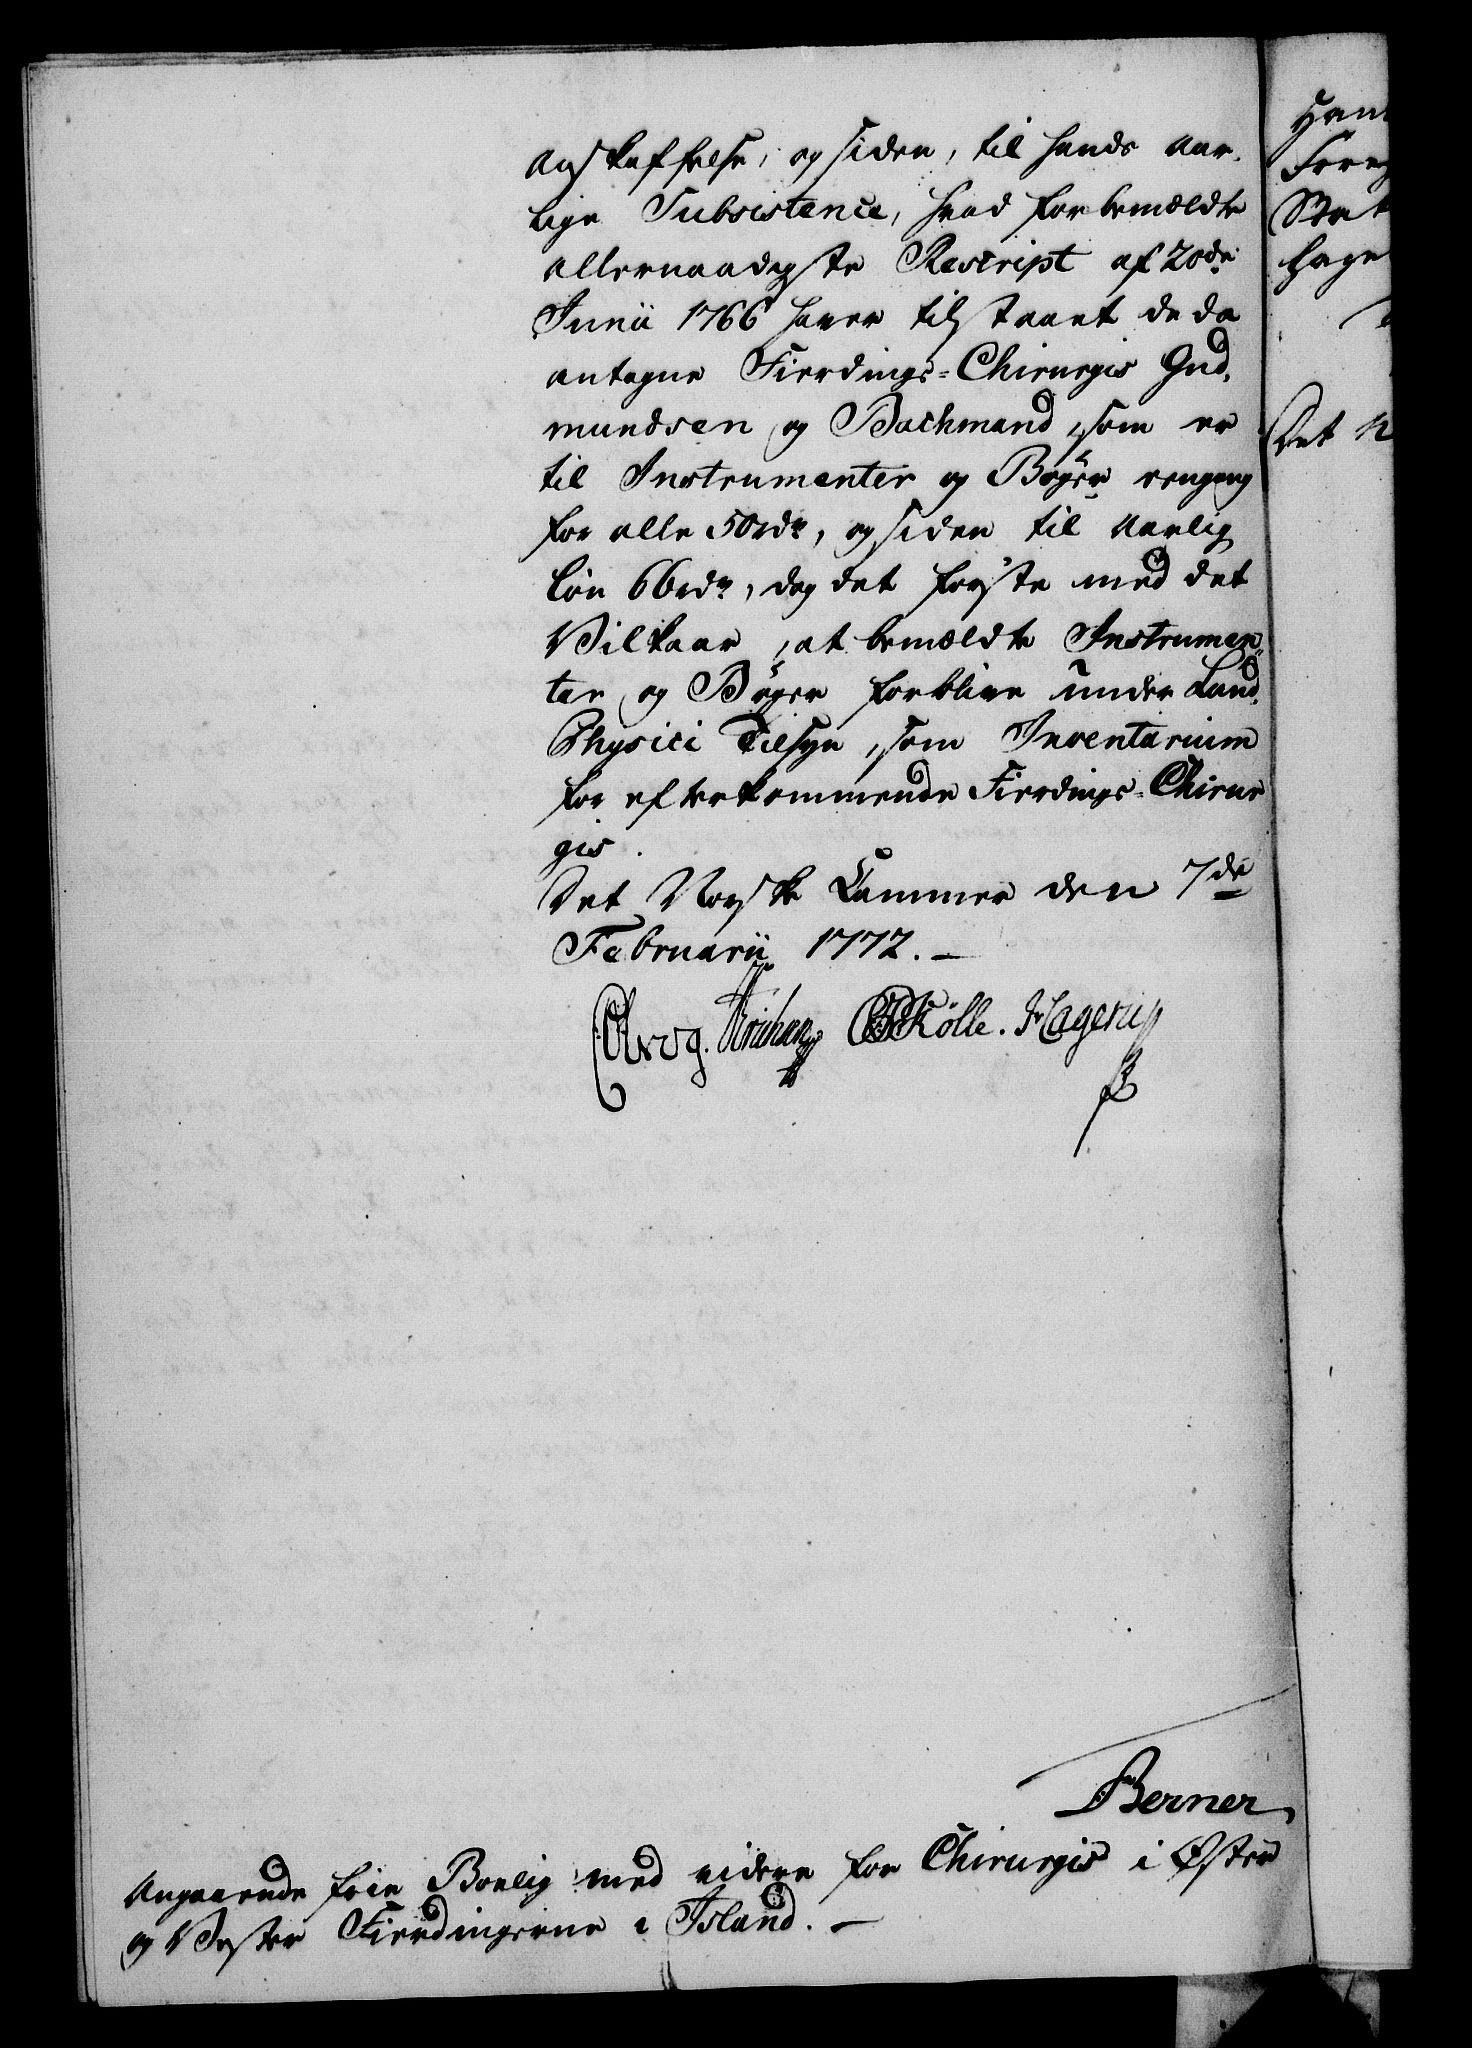 Anskaffelse, og siden, til hands aar-
lige Subsistence, hvad forbemældte
allernaadigste Rescript af 20de
Junii 1766 haver tilstaaet de da
antagne Fierdings-Chirurgis Gud-
mundsen og Bachmand, som er
til Instrumenter og Bøger eengang
for alle 50rdr, og siden til aarlig
Løn 66rdr, dog det første med det
Vilkaar, at bemældte Instrumen-
ter og Bøger forblive under Land-
Physici Tilsyn, som Inventarium
for efterkommende Fierdings-Chirur
gis.
Det Norske Cammer den 7de
Februarii 1772. —
CKølle. Hagerup
Berner
Angaaende frie Boelig med videre for Chirurgis i Øster
og Vester Fierdingerne i Island. —
Det N